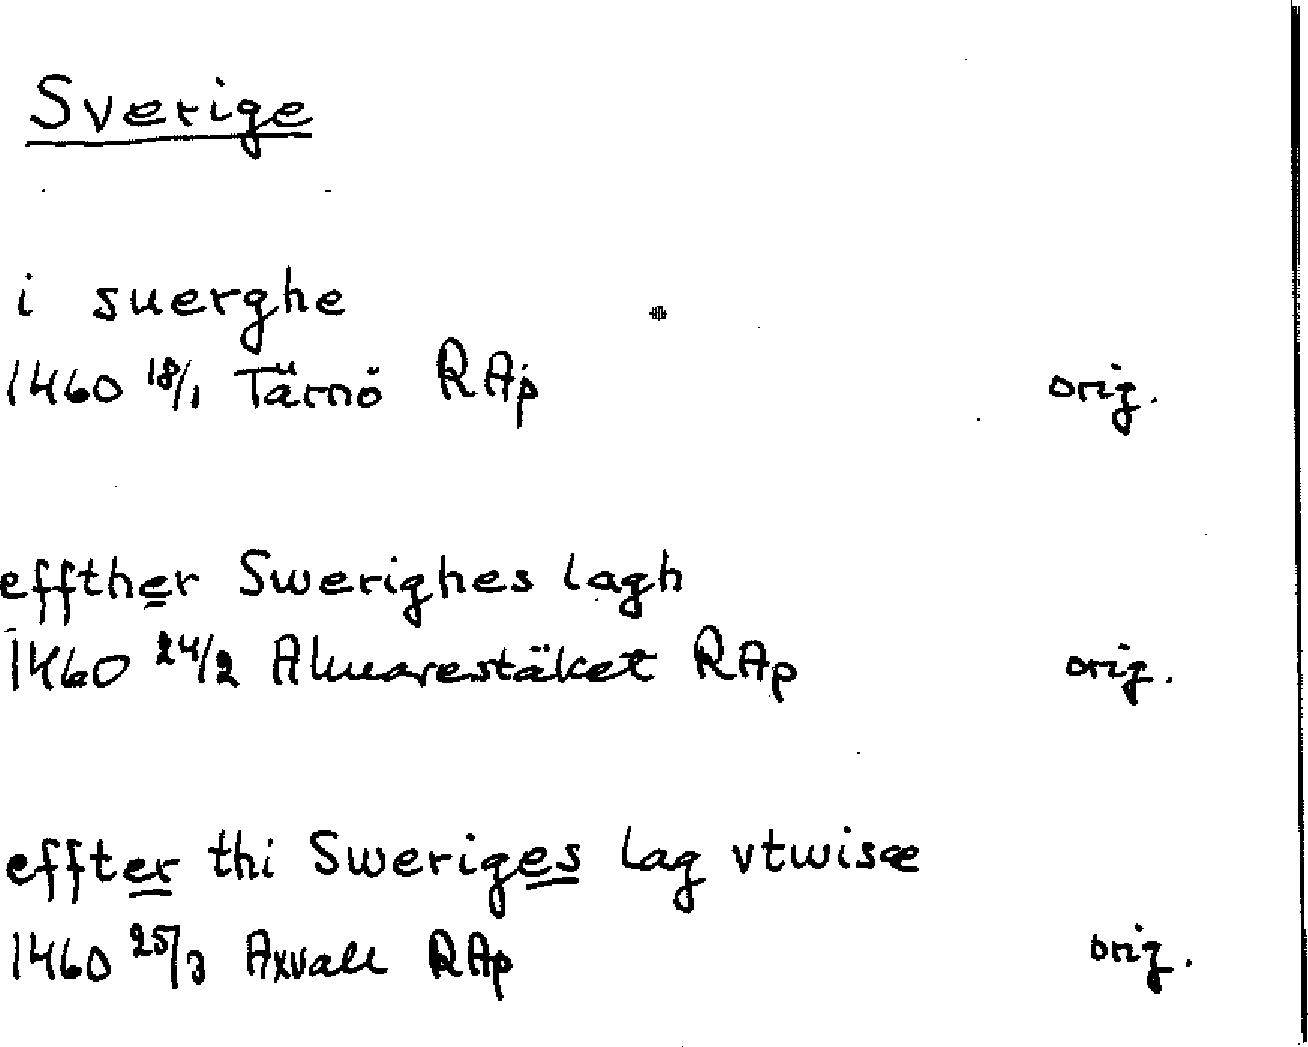 Sverige
i suerghe
1460 18/1 Tärnö RAp orig.
effther Swerighes lagh
1460 24/2 Almarestäket RAp orig.
effter thi Sweriges lag vtwisæ
1460 25/3 Axvall RAp orig.